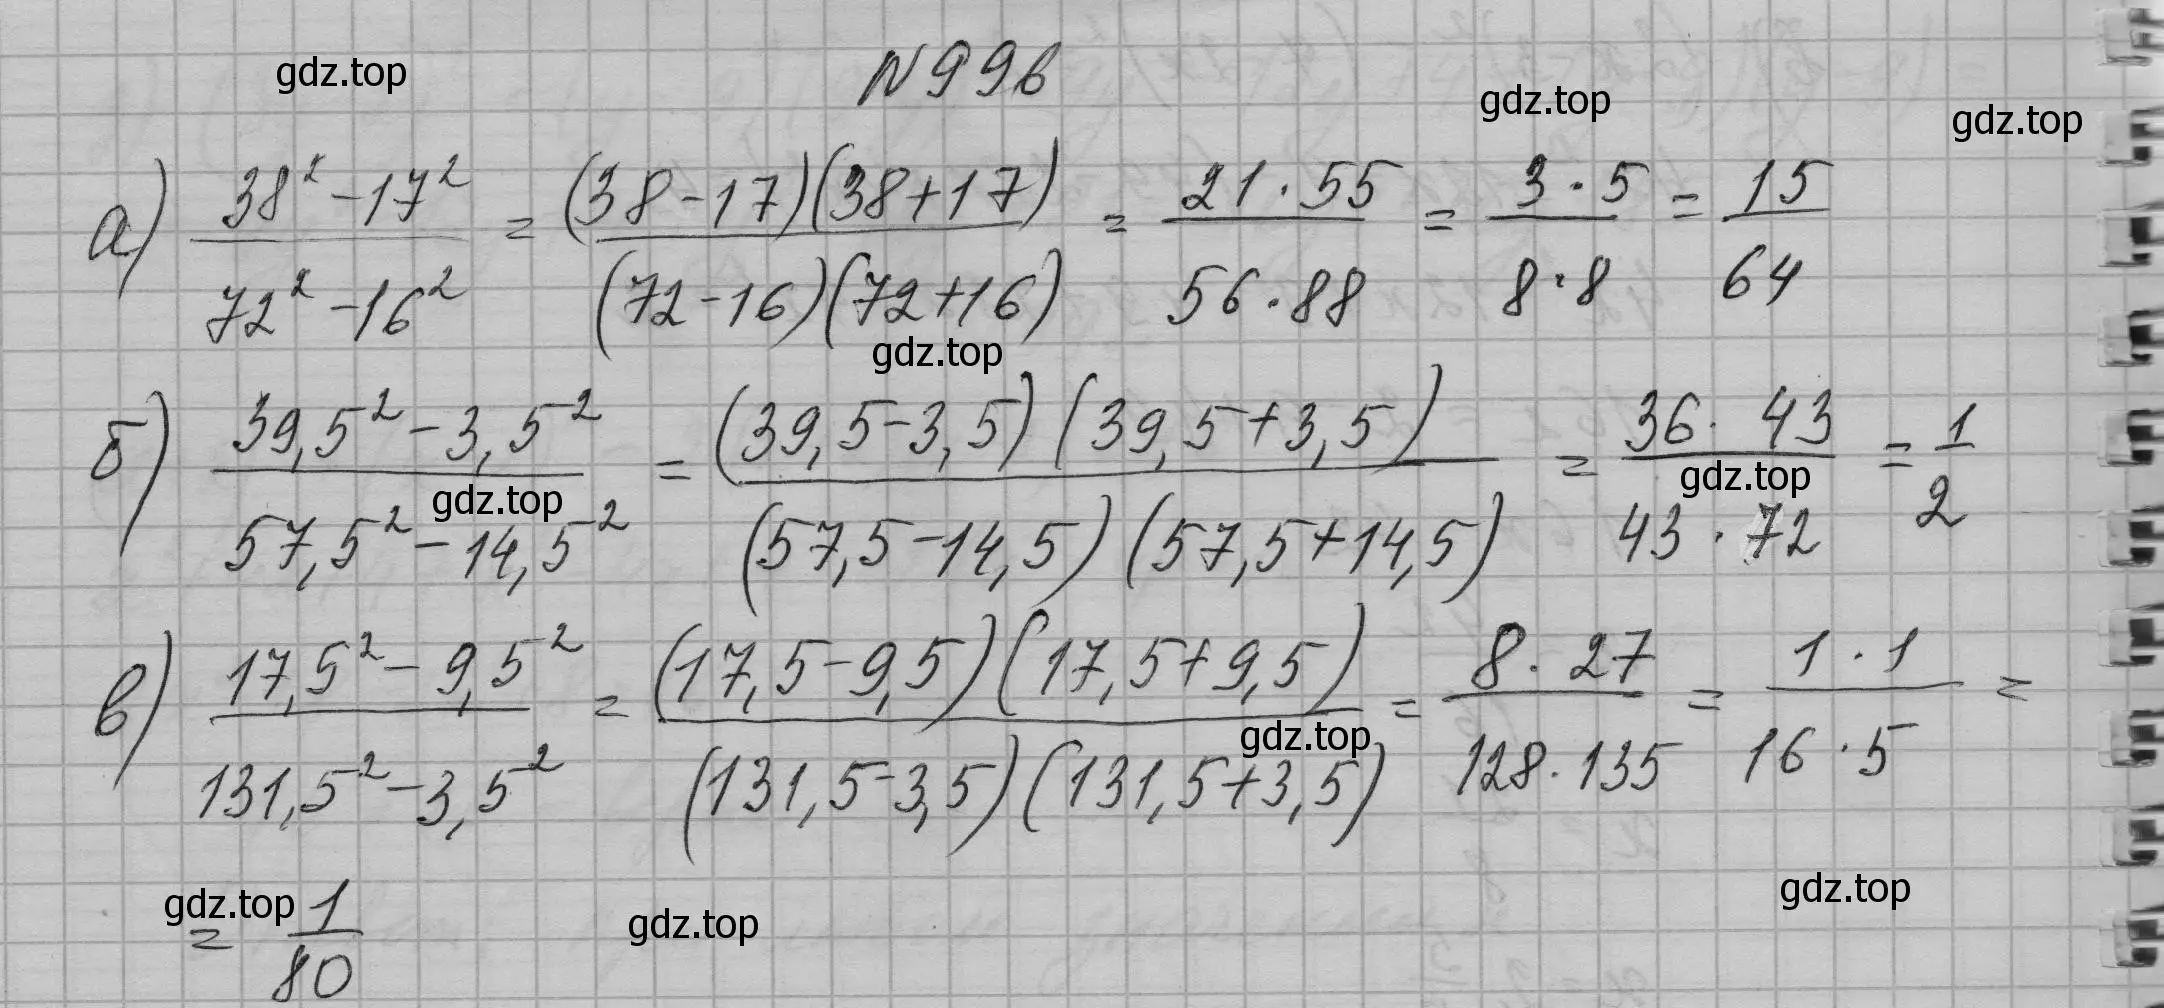 gdz.top
N 996
gdz.top
gdz.top
а) (38² - 17²)/(72² - 16²) = ((38-17)(38+17))/((72-16)(72+16)) = (21·55)/(56·88) = (3·5)/(8·8) = 15/64
gdz.top
б) (39,5² - 3,5²)/(57,5² - 14,5²) = ((39,5-3,5)(39,5+3,5))/((57,5-14,5)(57,5+14,5)) = (36·43)/(43·72) = 1/2
gdz.top
gdz.top
в) (17,5² - 9,5²)/(131,5² - 3,5²) = ((17,5-9,5)(17,5+9,5))/((131,5-3,5)(131,5+3,5)) = (8·27)/(128·135) = (1·1)/(16·5) =
gdz.top
= 1/80
gdz.top
gdz.top
gdz.top